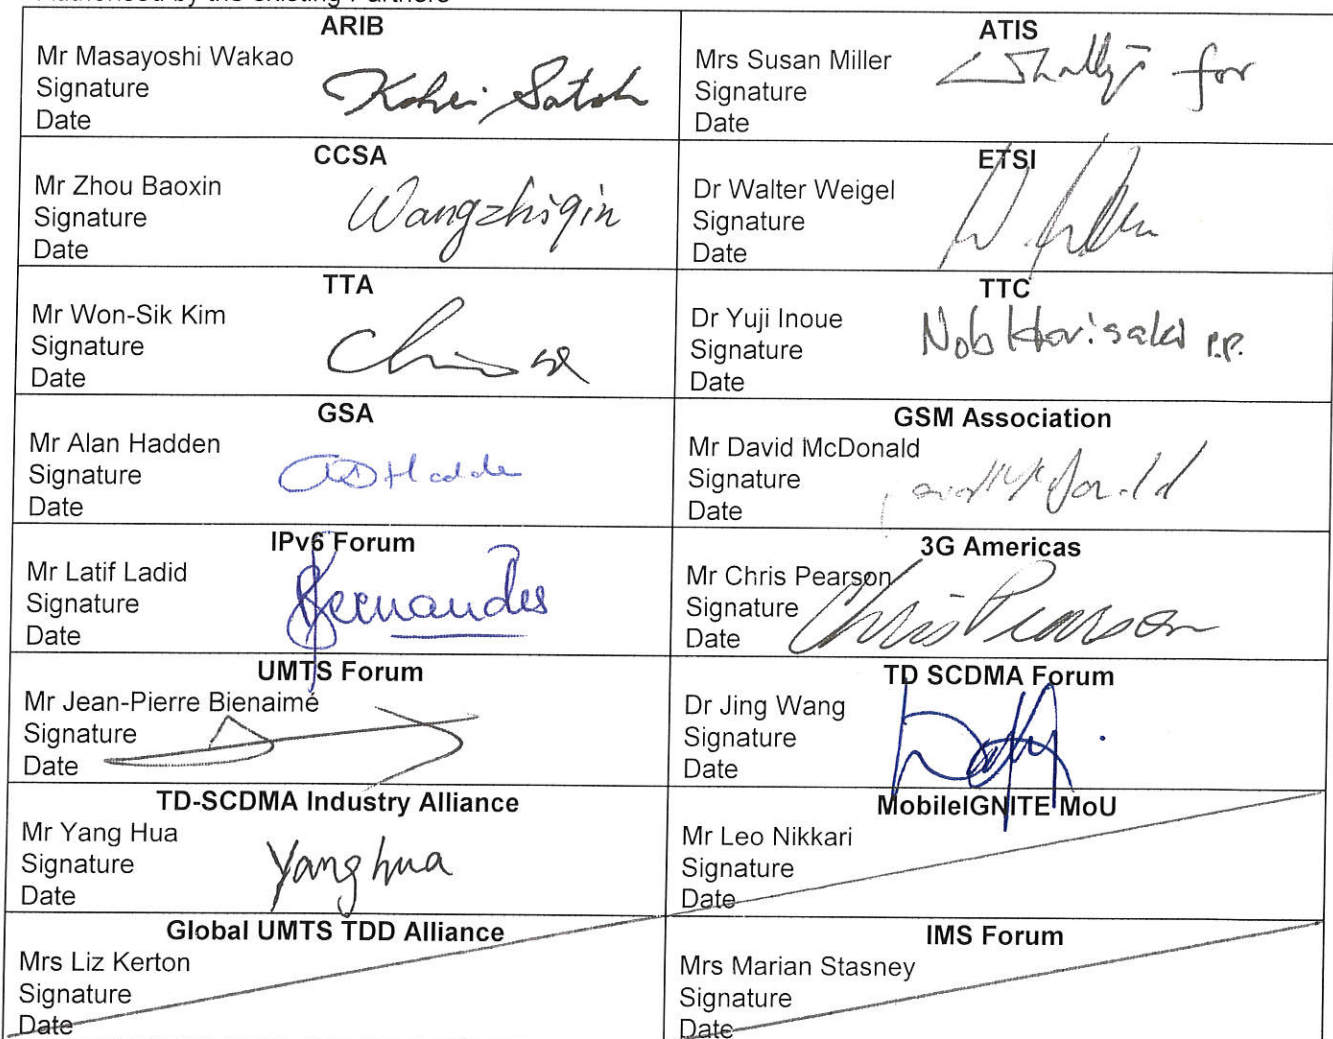 Authorised by the existing Partners
ARIB
Mr Masayoshi Wakao
Signature
Date
Kohei Satoh
ATIS
Mrs Susan Miller
Signature
Date
for
CCSA
Mr Zhou Baoxin
Signature
Date
Wangzhiqin
ETSI
Dr Walter Weigel
Signature
Date
TTA
Mr Won-Sik Kim
Signature
Date
TTC
Dr Yuji Inoue
Signature
Date
Nob Horisaki P.P.
GSA
Mr Alan Hadden
Signature
Date
GSM Association
Mr David McDonald
Signature
Date
IPv6 Forum
Mr Latif Ladid
Signature
Date
Fernandes
3G Americas
Mr Chris Pearson
Signature
Date
Chris Pearson
UMTS Forum
Mr Jean-Pierre Bienaimé
Signature
Date
TD SCDMA Forum
Dr Jing Wang
Signature
Date
TD-SCDMA Industry Alliance
Mr Yang Hua
Signature
Date
Yanghua
MobileIGNITE MoU
Mr Leo Nikkari
Signature
Date
Global UMTS TDD Alliance
Mrs Liz Kerton
Signature
Date
IMS Forum
Mrs Marian Stasney
Signature
Date